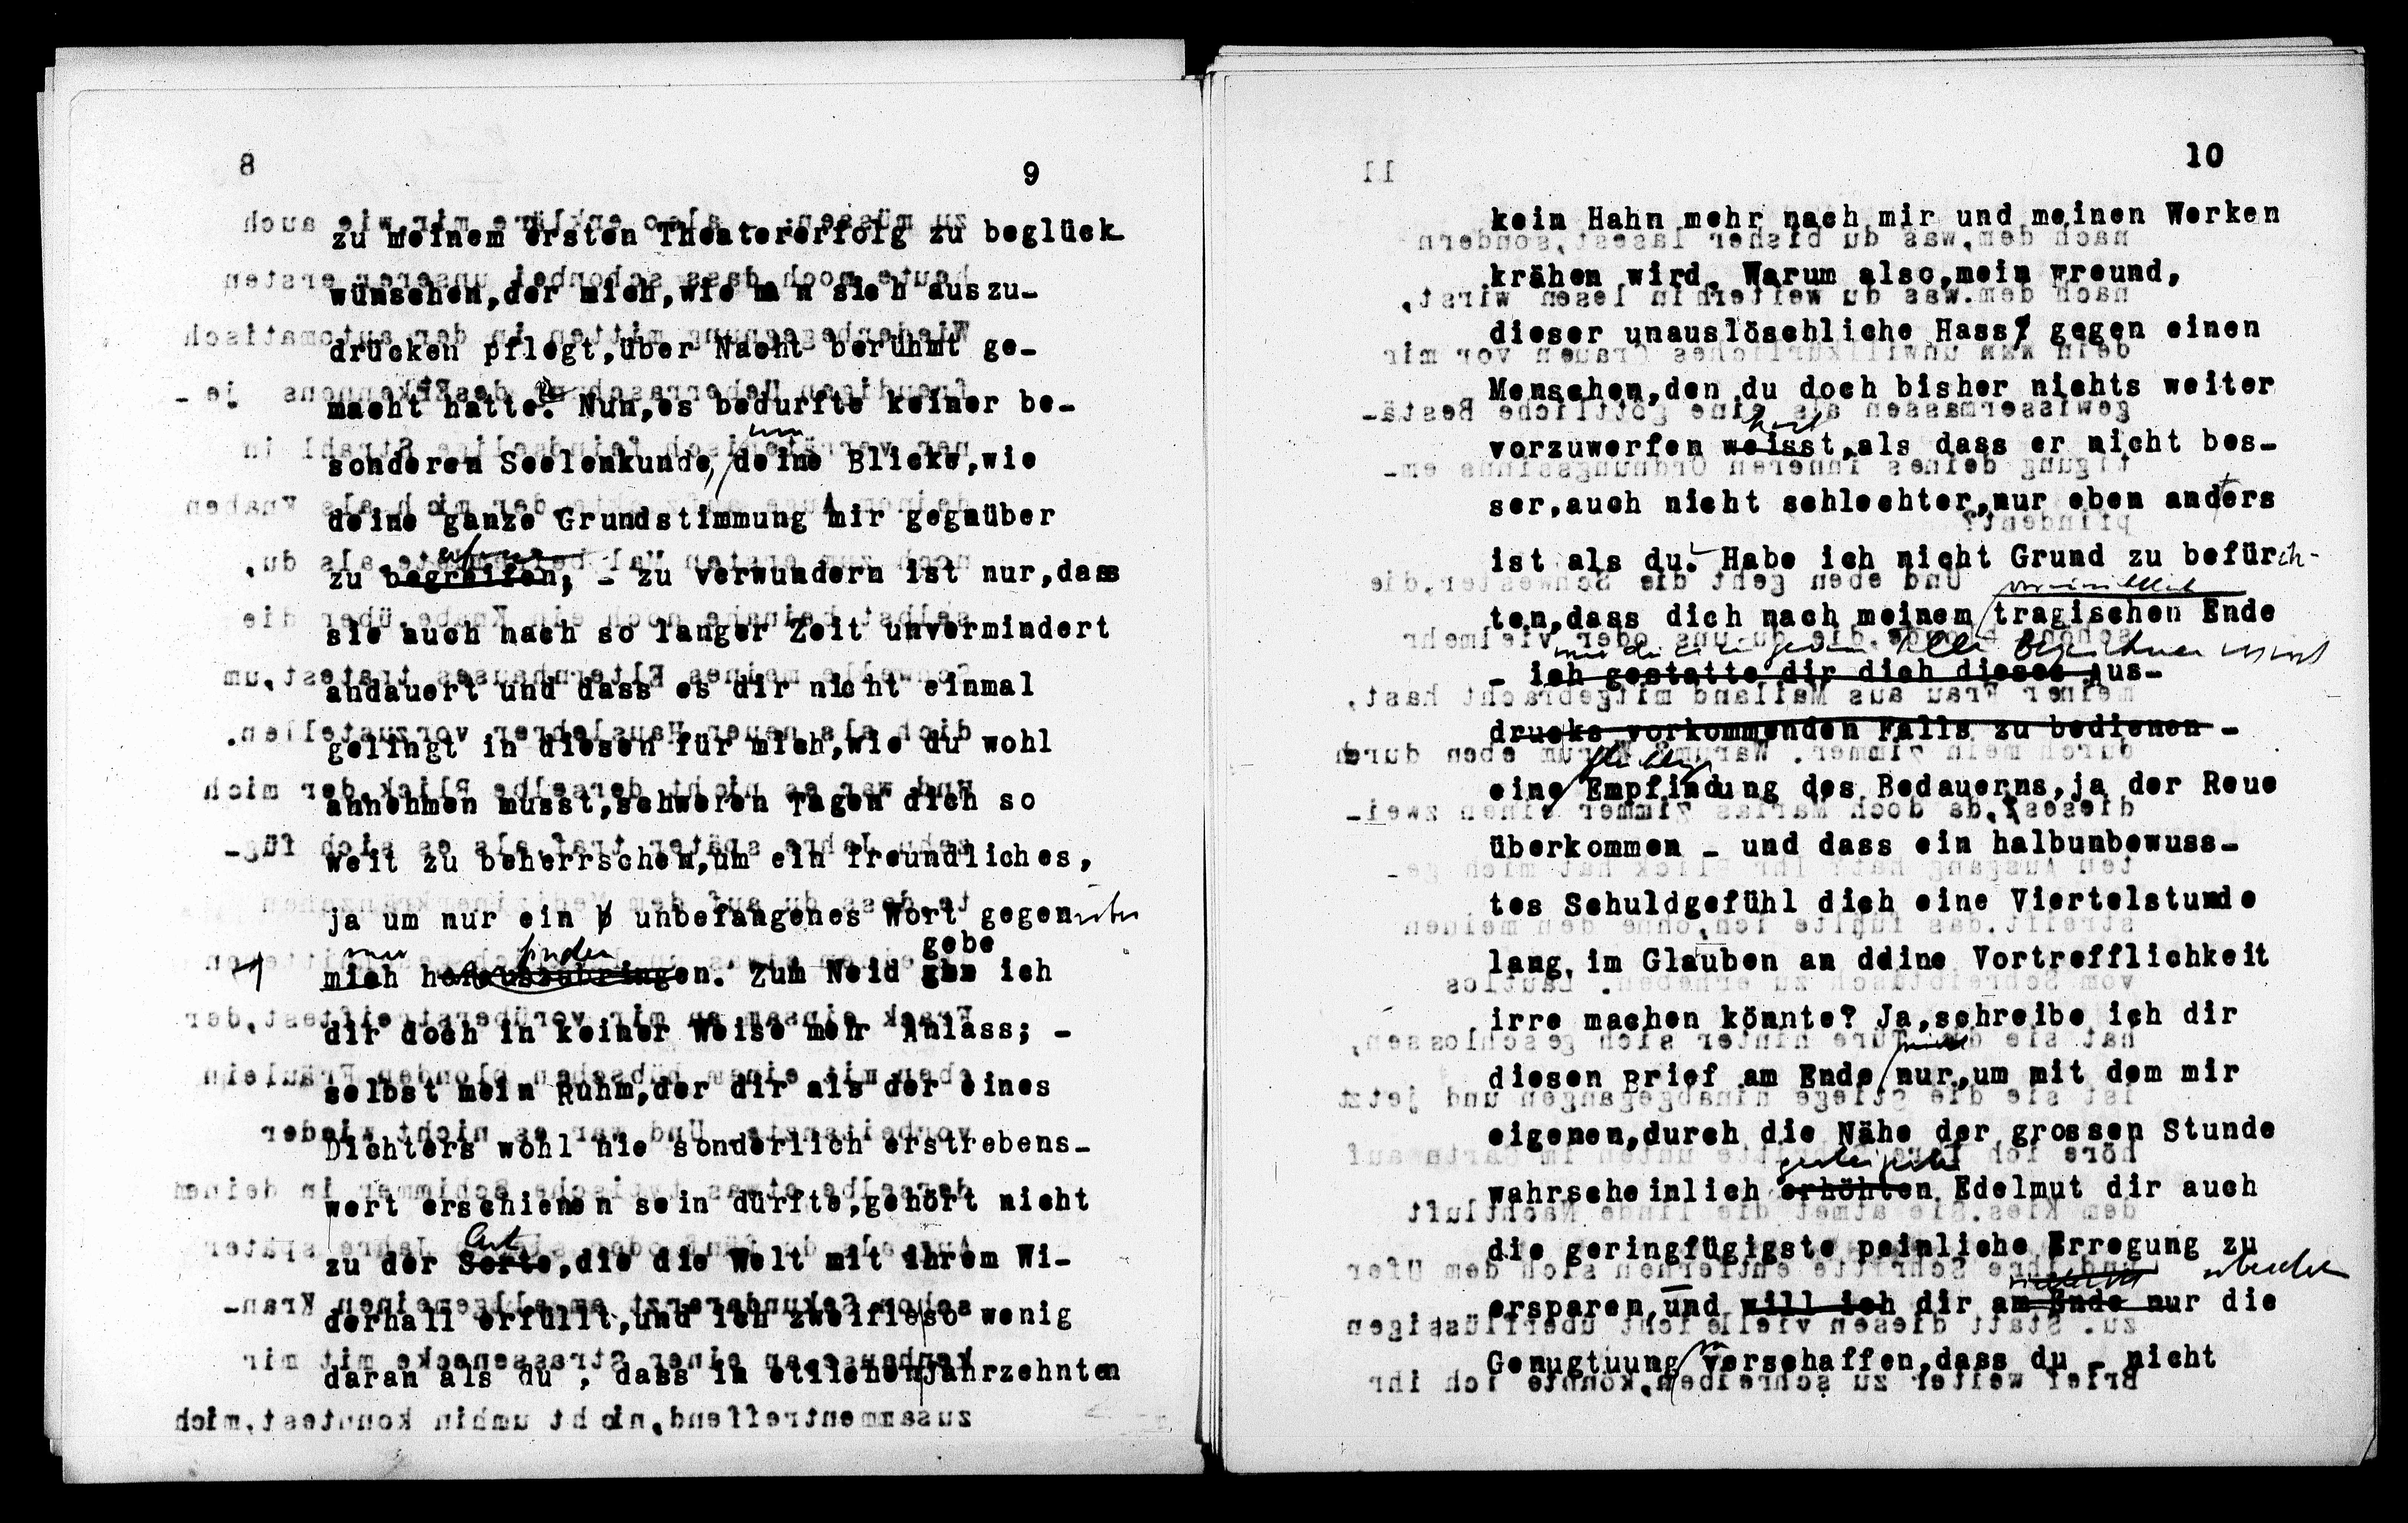 9
zu meinem ersten Theatererfolg zu beglück-
wünschen,der mich,wie man sich auszu-
drücken pflegt,über Nacht berühmt ge-
macht hatte? Nun,es bedurfte keiner be-
um
sonderen Seelenkunde, deine Blicke,wie
deine ganze Grundstimmung mir gegnüber
zu begreifen, - zu verwundern ist nur,dass
sie auch nach so langer Zeit unvermindert
andauert und dass es dir nicht einmal
gelingt in diesen für mich,wie du wohl
annehmen musst,schweren Tagen dich so
weit zu beherrschen,um ein freundliches,
ja um nur ein unbefangenes Wort gegenüber
mir finden gebe
mich herauszubringen. Zum Neid ich
dir doch in keiner Weise mehr Anlass; -
selbst mein Ruhm,der dir als der eines
Dichters wohl nie sonderlich erstrebens-
wert erschienen sein dürfte,gehört nicht
Art
zu der Sorte,die die Welt mit ihrem Wi-
derhall erfüllt,und ich zweifle so wenig
daran als du , dass in etlichen Jahrzehnten
10
kein Hahn mehr nach mir und meinen Werken
krähen wird. Warum also,mein Freund,
dieser unauslöschliche Hass gegen einen
Menschen,den du doch bisher nichts weiter
hast
vorzuwerfen weisst,als dass er nicht bes-
ser,auch nicht schlechter,nur eben anders
ist als du? Habe ich nicht Grund zu befürch-
vermutlich
ten,dass dich nach meinem tragischen Ende
wie du es in jedem Falle bezeichnen wirst
- ich gestatte dir dich dieses Aus-
drucks vorkommenden Falls zu bedienen -
flüchtige
eine Empfindung des Bedauerns,ja der Reue
überkommen - und dass ein halbunbewuss-
tes Schuldgefühl dich eine Viertelstunde
lang, im Glauben an ddine Vortrefflichkeit
irre machen könnte? Ja,schreibe ich dir
diesen Brief am Ende nur,um mit dem mir
eigenen,durch die Nähe der grossen Stunde
gesteigerten
wahrscheinlich erhöhten Edelmut dir auch
die geringfügigste peinliche Erregung zu
ersparen,und will ich dir am Ende nur die
Genugtuung verschaffen,dass du - nicht